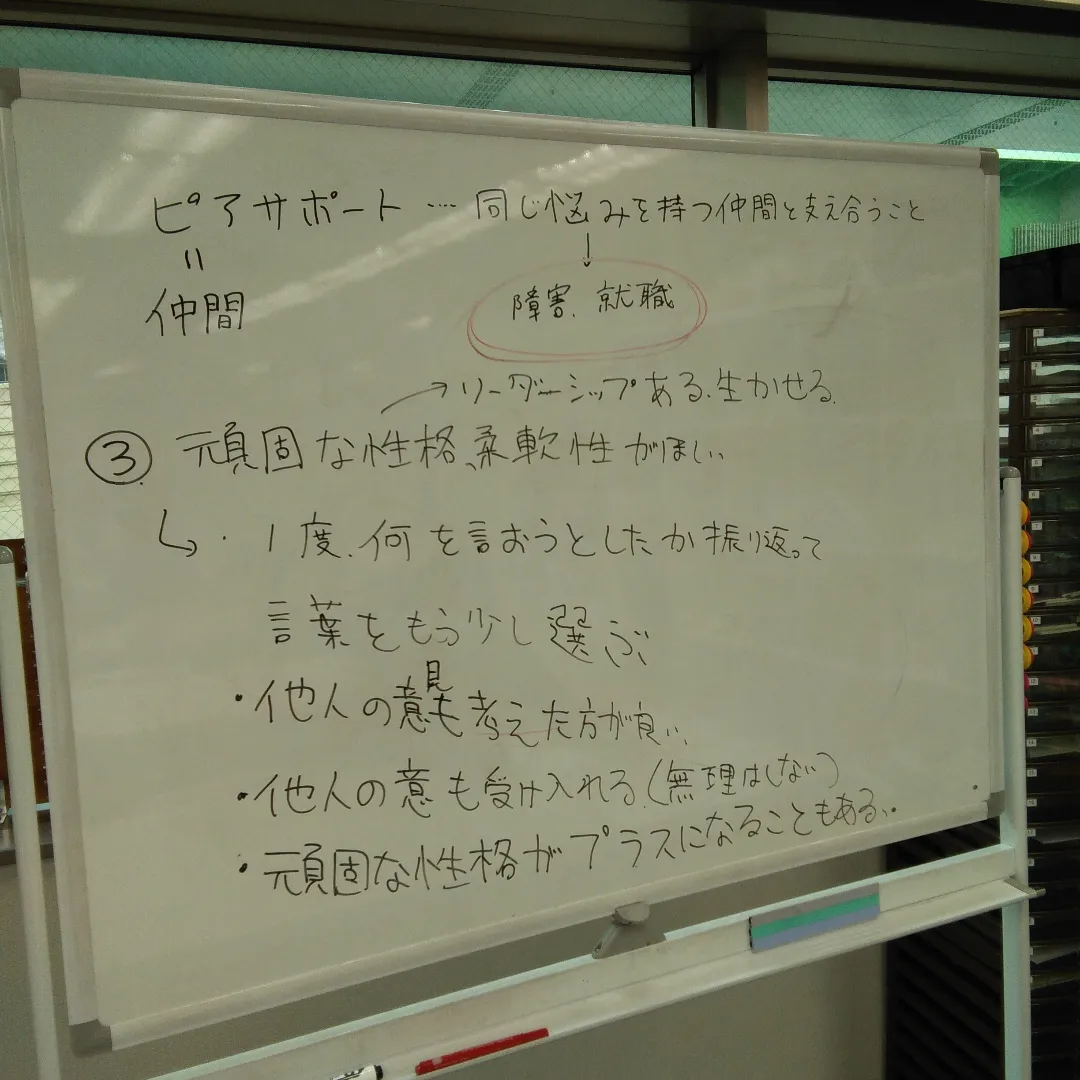 ピアサポート … 同じ悩みを持つ仲間と支え合うこと
=
↓
仲間
障害、就職
→リーダーシップある、生かせる。
③ 頑固な性格、柔軟性がほしい
↳ ・1度、何を言おうとしたか振り返って
言葉をもう少し選ぶ
・他人の意見も考えた方が良い、
・他人の意も受け入れる(無理はしない)
・頑固な性格がプラスになることもある、